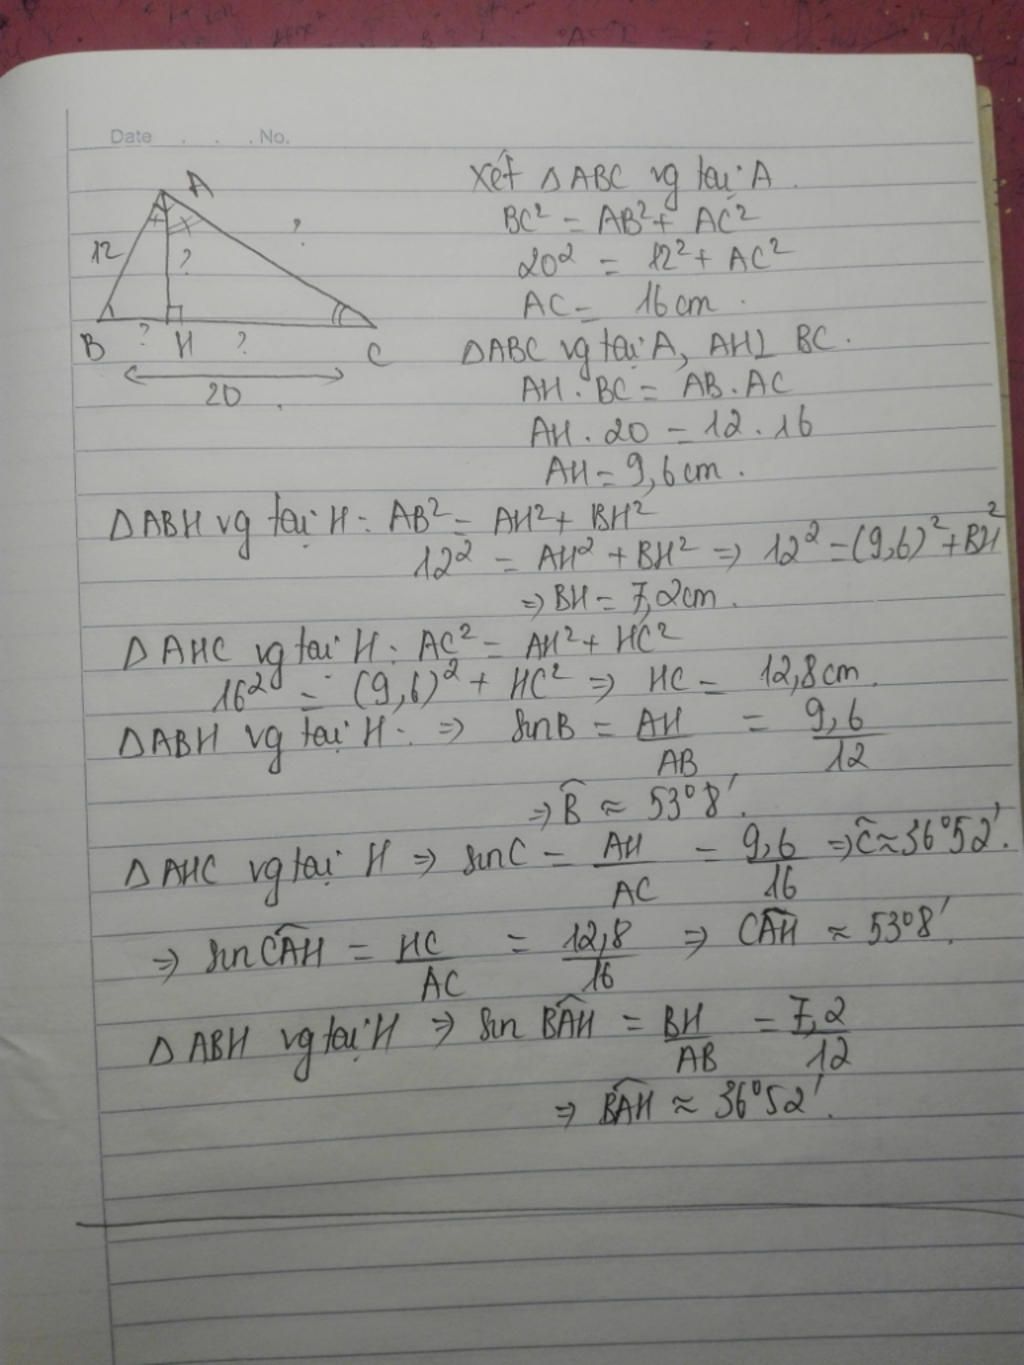 Date . . . No.
A
12
?
?
B ? H ? C
20
Xét ΔABC vg tại A.
BC² = AB² + AC²
20² = 12² + AC²
AC = 16cm.
ΔABC vg tại A, AH⊥ BC.
AH . BC = AB . AC
AH . 20 = 12 . 16
AH = 9,6cm.
ΔABH vg tại H: AB² = AH² + BH²
12² = AH² + BH² => 12² = (9,6)² + BH²
=> BH = 7,2cm.
ΔAHC vg tại H: AC² = AH² + HC²
16² = (9,6)² + HC² => HC = 12,8cm.
ΔABH vg tại H. => sinB = AH/AB = 9,6/12
=> B̂ ≈ 53°8'.
ΔAHC vg tại H => sinC = AH/AC = 9,6/16 => Ĉ ≈ 36°52'.
=> sin CÂH = HC/AC = 12,8/16 => CÂH ≈ 53°8'.
ΔABH vg tại H => sin BÂH = BH/AB = 7,2/12
=> BÂH ≈ 36°52'.